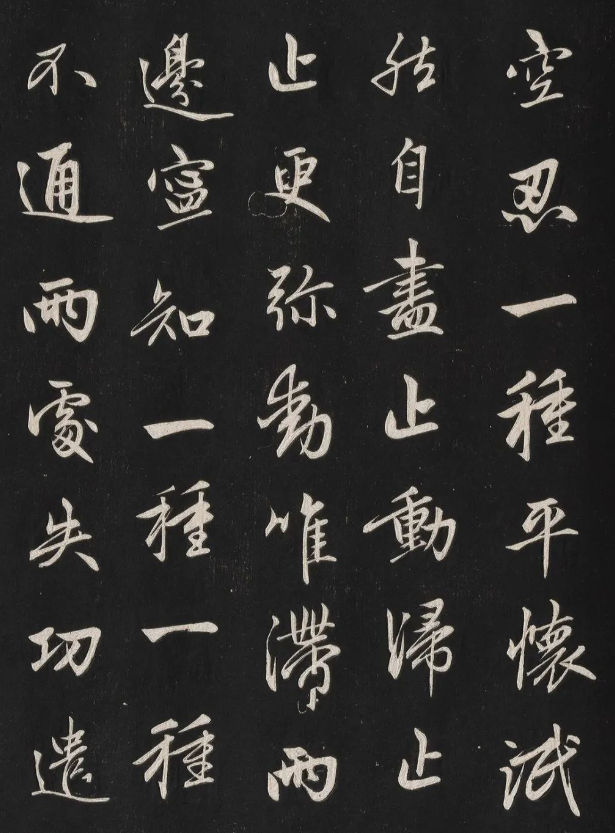 空忍一種平懷泯
然自盡止動歸止
止更弥動唯滯兩
邊寍知一種一種
不通兩處失功遣